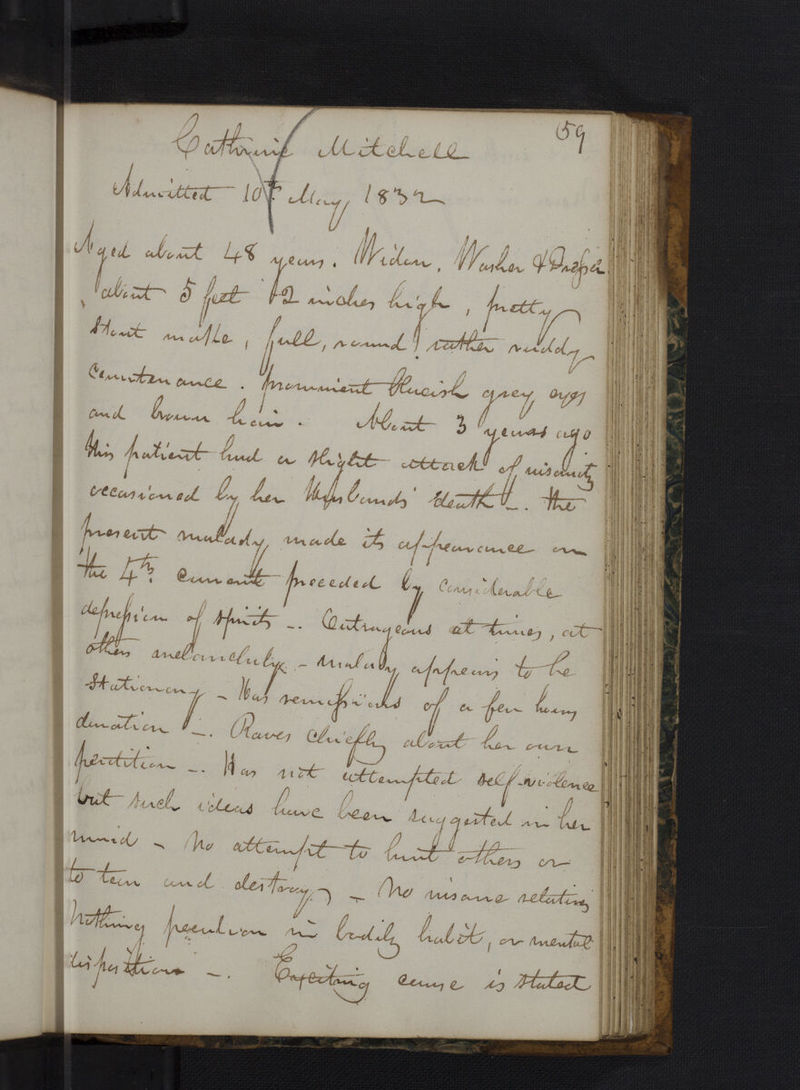 59
Cathrine Mitchell
Admitted 10th May 1832
Aged about 48 years. Widow. Washer & Dresser
about 5 feet 2 inches high, pretty
stout make, full, round, rather ruddy
countenance. prominent blueish grey eyes
and brown hair. About 3 years ago
this patient had a slight attack of insanity
occasioned by her Husbands' death -. The
present malady made its appearance on
the 4th. Current preceded by considerable
depression of spirits -. Outrageous at times, at
others melancholy - malady appears to be
Stationary - Has remissions of a few hours
duration -. Raves chiefly about her own
perdition -. Has not attempted self-violence
but such ideas have been suggested in her
mind - No attempt to hurt others or
to tear and destroy - No insane relatives
Nothing peculiar in bodily habit, or mental
disposition -. Exciting cause is stated